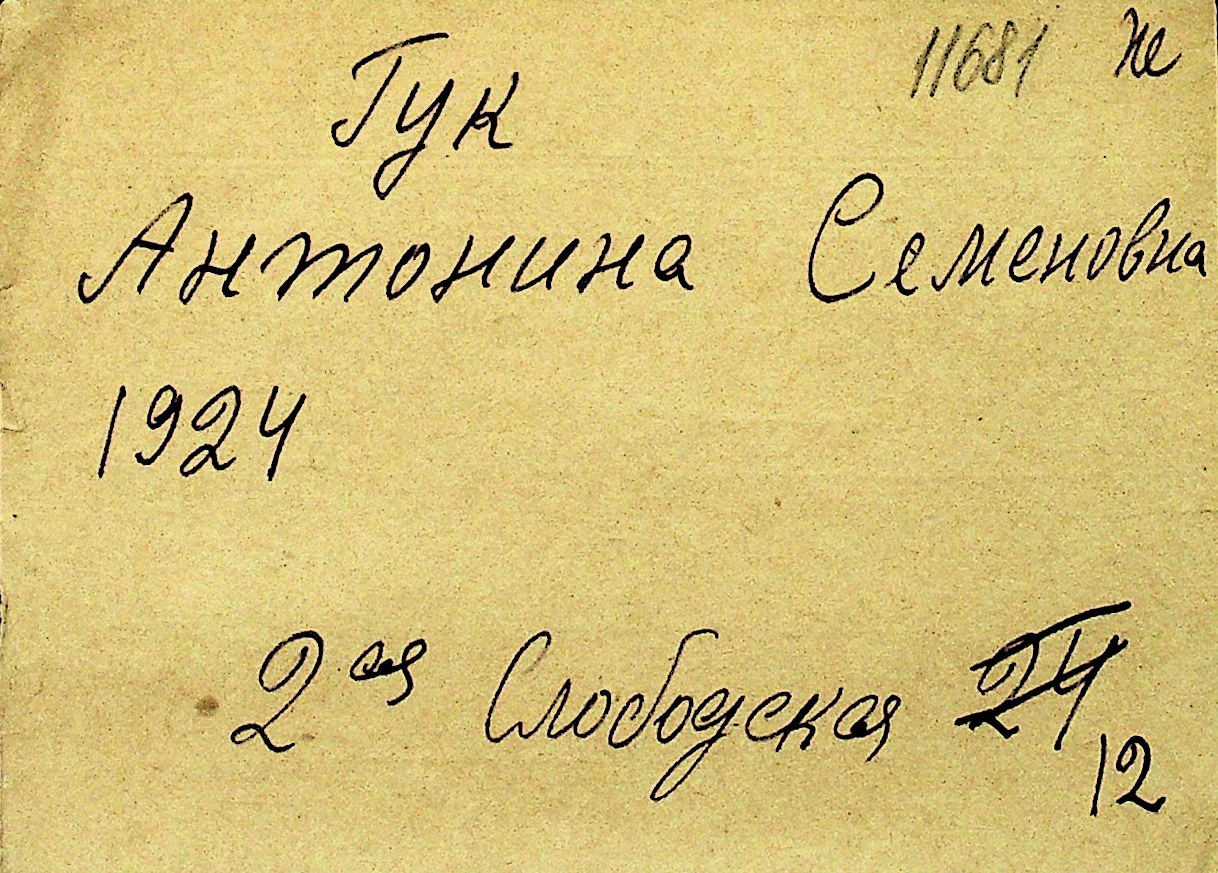 11681 не
Гук
Антонина Семеновна
1924
2ая Слободская 24
12